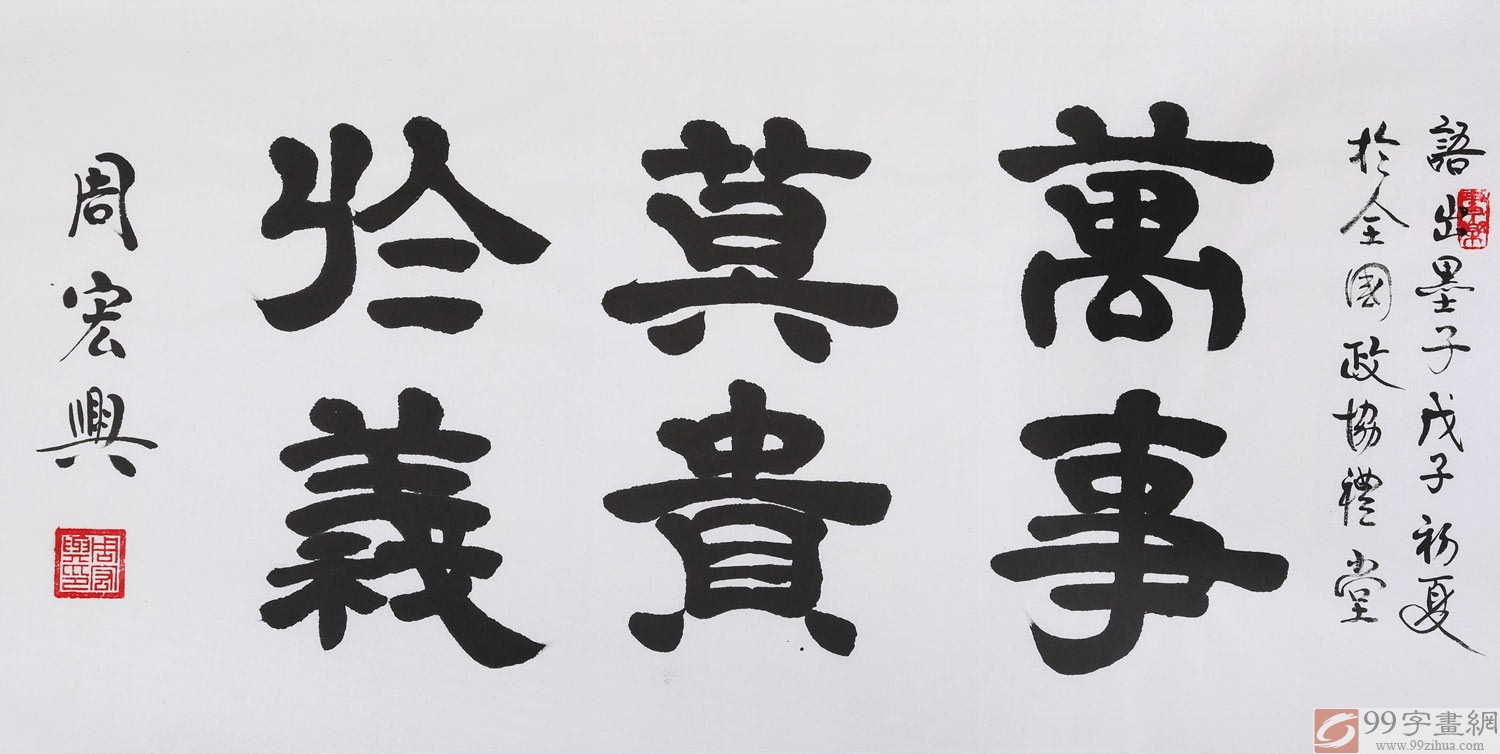 語出墨子戊子初夏
於全國政協禮堂
萬事
莫貴
於義
周宏興
周宏興印
99字畫網
www.99zihua.com